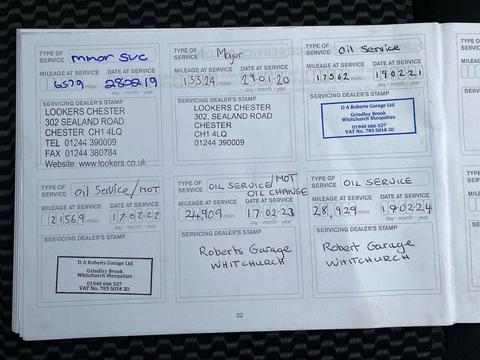 TYPE OF SERVICE minor svc
MILEAGE AT SERVICE DATE OF SERVICE
6579 miles 28 02 19
day - month - year
SERVICING DEALER'S STAMP
LOOKERS CHESTER
302 SEALAND ROAD
CHESTER CH1 4LQ
TEL 01244 390009
FAX 01244 380784
Website www.lookers.co.uk
TYPE OF SERVICE Major
MILEAGE AT SERVICE DATE OF SERVICE
13324 miles 29 01 20
day - month - year
SERVICING DEALER'S STAMP
LOOKERS CHESTER
302, SEALAND ROAD
CHESTER
CH1 4LQ
01244 390009
TYPE OF SERVICE Oil Service
MILEAGE AT SERVICE DATE OF SERVICE
17562 miles 19 02 21
day - month - year
SERVICING DEALER'S STAMP
D A Roberts Garage Ltd
Grindley Brook
Whitchurch Shropshire
01948 666 527
VAT No. 783 5018 20
TYPE OF SERVICE Oil Service/MOT
MILEAGE AT SERVICE DATE OF SERVICE
21569 miles 17 02 22
day - month - year
SERVICING DEALER'S STAMP
D A Roberts Garage Ltd
Grindley Brook
Whitchurch Shropshire
01948 666 527
VAT No. 783 5018 20
TYPE OF SERVICE OIL SERVICE/MOT
OIL CHANGE
MILEAGE AT SERVICE DATE OF SERVICE
24909 miles 17 02 23
day - month - year
SERVICING DEALER'S STAMP
Roberts Garage
WHITCHURCH
TYPE OF SERVICE OIL SERVICE
MILEAGE AT SERVICE DATE OF SERVICE
28,929 miles 19 02 24
day - month - year
SERVICING DEALER'S STAMP
Robert Garage
WHITCHURCH
22